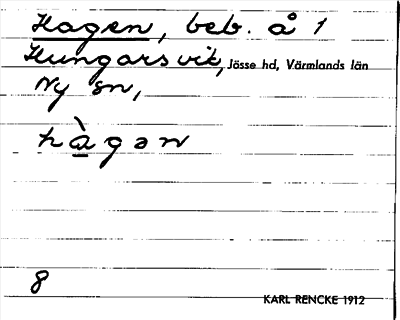 Hagen, beb. å 1
Hungarsvik, Jösse hd, Värmlands län
Ny sn,
hà̱gən
8
KARL RENCKE 1912